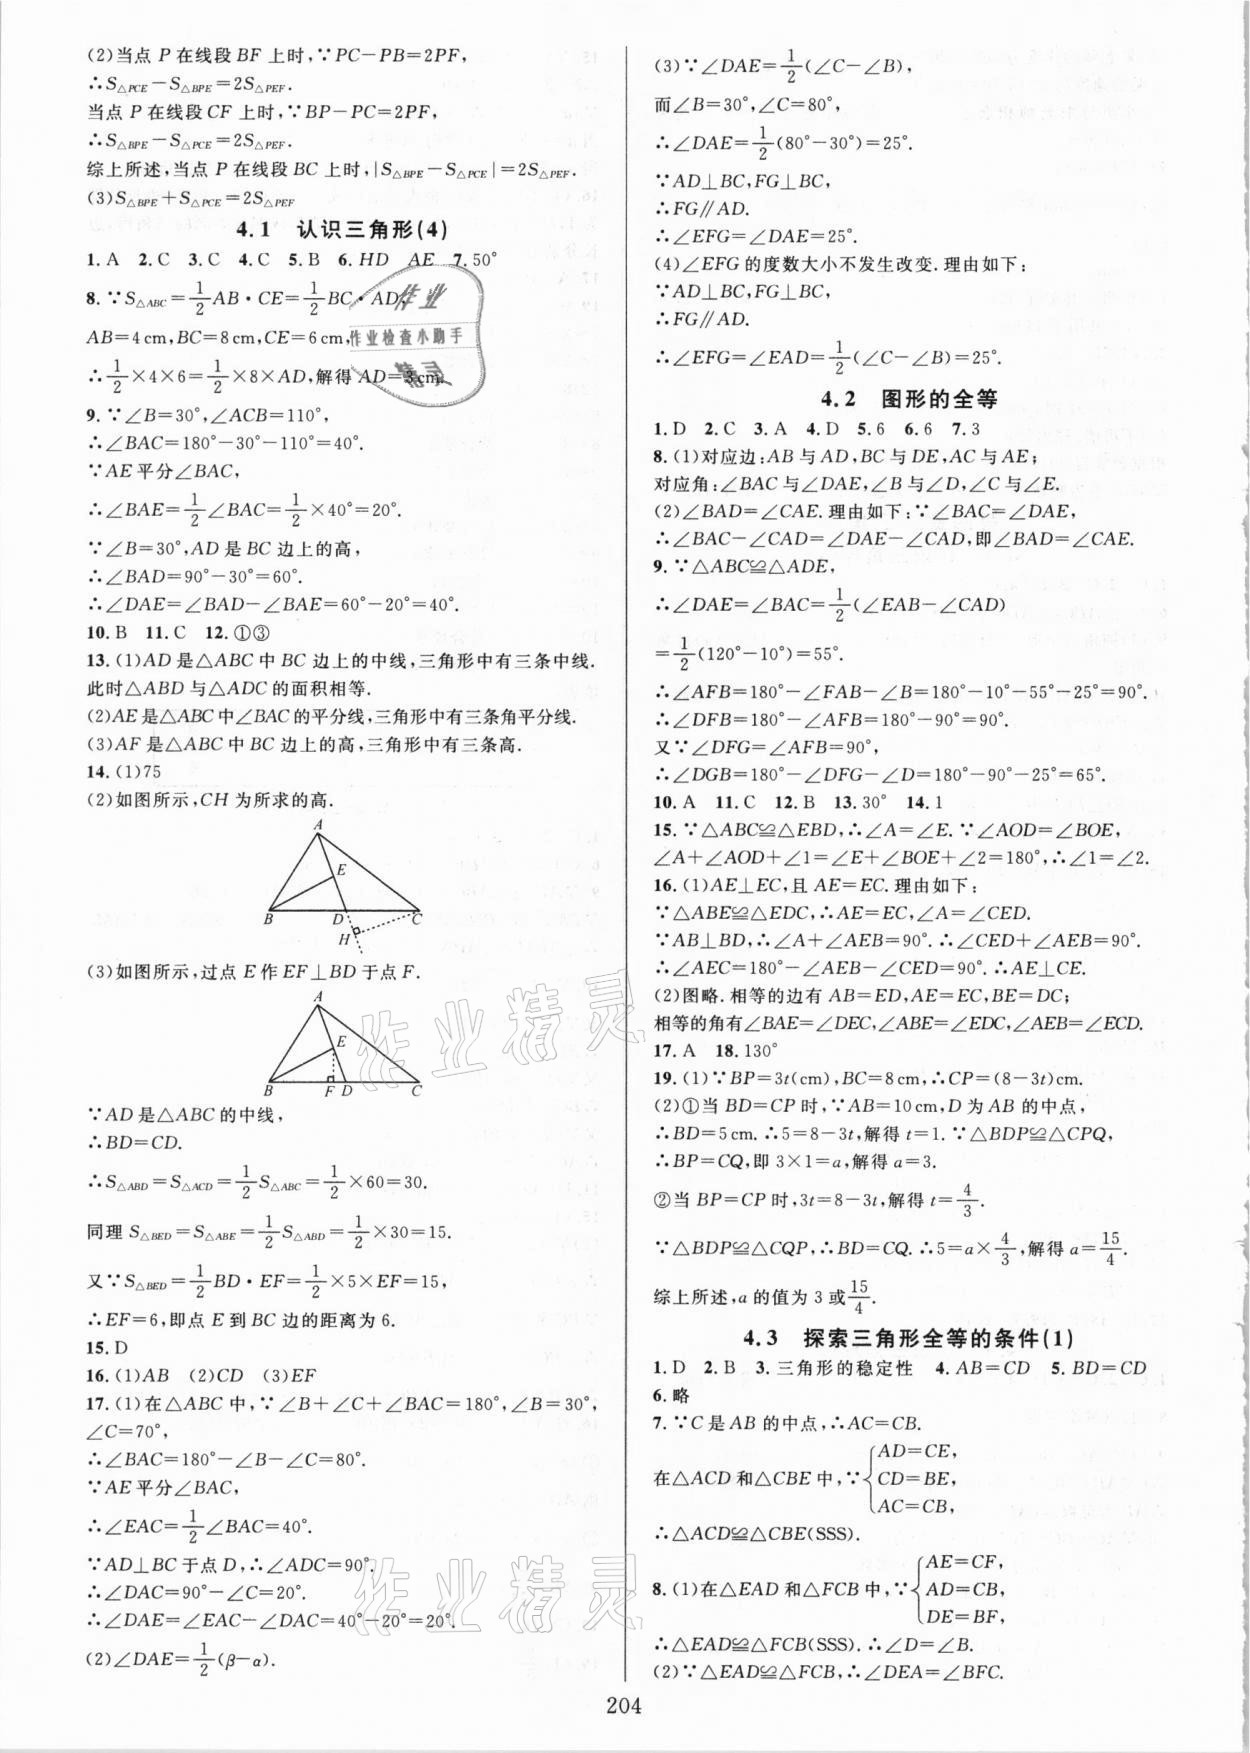 (2)当点 P 在线段 BF 上时,∵PC−PB=2PF,
∴S△PCE−S△BPE=2S△PEF.
当点 P 在线段 CF 上时,∵BP−PC=2PF,
∴S△BPE−S△PCE=2S△PEF.
综上所述,当点 P 在线段 BC 上时,|S△BPE−S△PCE|=2S△PEF.
(3)S△BPE+S△PCE=2S△PEF
4.1 认识三角形(4)
1.A 2.C 3.C 4.C 5.B 6.HD AE 7.50°
8.∵S△ABC=1/2AB·CE=1/2BC·AD,
AB=4 cm,BC=8 cm,CE=6 cm,
∴1/2×4×6=1/2×8×AD,解得 AD=3 cm.
9.∵∠B=30°,∠ACB=110°,
∴∠BAC=180°−30°−110°=40°.
∵AE 平分∠BAC,
∴∠BAE=1/2∠BAC=1/2×40°=20°.
∵∠B=30°,AD 是 BC 边上的高,
∴∠BAD=90°−30°=60°.
∴∠DAE=∠BAD−∠BAE=60°−20°=40°.
10.B 11.C 12.①③
13.(1)AD 是△ABC 中 BC 边上的中线,三角形中有三条中线.
此时△ABD 与△ADC 的面积相等.
(2)AE 是△ABC 中∠BAC 的平分线,三角形中有三条角平分线.
(3)AF 是△ABC 中 BC 边上的高,三角形中有三条高.
14.(1)75
(2)如图所示,CH 为所求的高.
A
E
B D C
H
(3)如图所示,过点 E 作 EF⊥BD 于点 F.
A
E
B F D C
∵AD 是△ABC 的中线,
∴BD=CD.
∴S△ABD=S△ACD=1/2S△ABC=1/2×60=30.
同理 S△BED=S△ABE=1/2S△ABD=1/2×30=15.
又∵S△BED=1/2BD·EF=1/2×5×EF=15,
∴EF=6,即点 E 到 BC 边的距离为 6.
15.D
16.(1)AB (2)CD (3)EF
17.(1)在△ABC 中,∵∠B+∠C+∠BAC=180°,∠B=30°,
∠C=70°,
∴∠BAC=180°−∠B−∠C=80°.
∵AE 平分∠BAC,
∴∠EAC=1/2∠BAC=40°.
∵AD⊥BC 于点 D,∴∠ADC=90°.
∴∠DAC=90°−∠C=20°.
∴∠DAE=∠EAC−∠DAC=40°−20°=20°.
(2)∠DAE=1/2(β−α).
(3)∵∠DAE=1/2(∠C−∠B),
而∠B=30°,∠C=80°,
∴∠DAE=1/2(80°−30°)=25°.
∵AD⊥BC,FG⊥BC,
∴FG∥AD.
∴∠EFG=∠DAE=25°.
(4)∠EFG 的度数大小不发生改变.理由如下:
∵AD⊥BC,FG⊥BC,
∴FG∥AD.
∴∠EFG=∠EAD=1/2(∠C−∠B)=25°.
4.2 图形的全等
1.D 2.C 3.A 4.D 5.6 6.6 7.3
8.(1)对应边:AB 与 AD,BC 与 DE,AC 与 AE;
对应角:∠BAC 与∠DAE,∠B 与∠D,∠C 与∠E.
(2)∠BAD=∠CAE.理由如下:∵∠BAC=∠DAE,
∴∠BAC−∠CAD=∠DAE−∠CAD,即∠BAD=∠CAE.
9.∵△ABC≌△ADE,
∴∠DAE=∠BAC=1/2(∠EAB−∠CAD)
=1/2(120°−10°)=55°.
∴∠AFB=180°−∠FAB−∠B=180°−10°−55°−25°=90°.
∴∠DFB=180°−∠AFB=180°−90°=90°.
又∵∠DFG=∠AFB=90°,
∴∠DGB=180°−∠DFG−∠D=180°−90°−25°=65°.
10.A 11.C 12.B 13.30° 14.1
15.∵△ABC≌△EBD,∴∠A=∠E.∵∠AOD=∠BOE,
∠A+∠AOD+∠1=∠E+∠BOE+∠2=180°,∴∠1=∠2.
16.(1)AE⊥EC,且 AE=EC.理由如下:
∵△ABE≌△EDC,∴AE=EC,∠A=∠CED.
∵AB⊥BD,∴∠A+∠AEB=90°.∴∠CED+∠AEB=90°.
∴∠AEC=180°−∠AEB−∠CED=90°.∴AE⊥CE.
(2)图略.相等的边有 AB=ED,AE=EC,BE=DC;
相等的角有∠BAE=∠DEC,∠ABE=∠EDC,∠AEB=∠ECD.
17.A 18.130°
19.(1)∵BP=3t(cm),BC=8 cm,∴CP=(8−3t)cm.
(2)①当 BD=CP 时,∵AB=10 cm,D 为 AB 的中点,
∴BD=5 cm.∴5=8−3t,解得 t=1.∵△BDP≌△CPQ,
∴BP=CQ,即 3×1=a,解得 a=3.
②当 BP=CP 时,3t=8−3t,解得 t=4/3.
∵△BDP≌△CQP,∴BD=CQ.∴5=a×4/3,解得 a=15/4.
综上所述,a 的值为 3 或15/4.
4.3 探索三角形全等的条件(1)
1.D 2.B 3.三角形的稳定性 4.AB=CD 5.BD=CD
6.略
7.∵C 是 AB 的中点,∴AC=CB.
在△ACD 和△CBE 中,∵{AD=CE,
CD=BE,
AC=CB,
∴△ACD≌△CBE(SSS).
8.(1)在△EAD 和△FCB 中,∵{AE=CF,
AD=CB,
DE=BF,
∴△EAD≌△FCB(SSS).∴∠D=∠B.
(2)∵△EAD≌△FCB,∴∠DEA=∠BFC.
204
作业
作业检查小助手
精灵
作业精灵
作业精灵